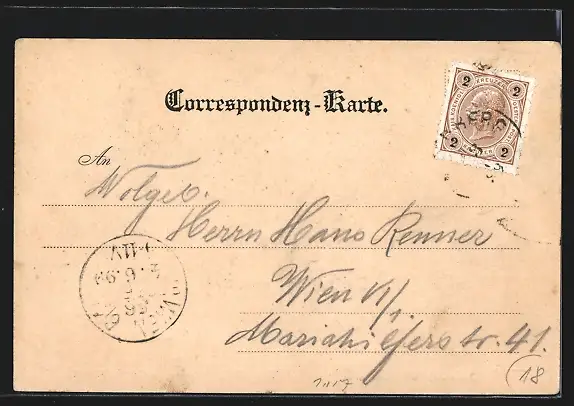 Correspondenz-Karte.
2 KREUZER 2
2 2
An
Wolgeb.
Herrn Hans Renner
Wien VI/1.
Mariahilferstr. 41.
WIEN
6. 99
18